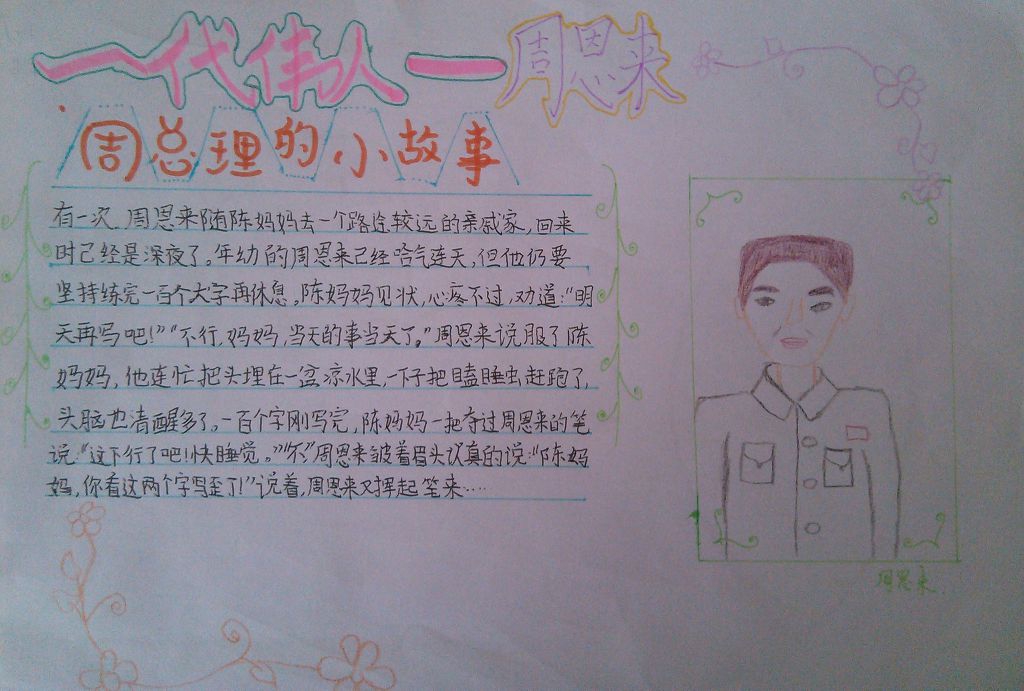 一代伟人一周恩来
周总理的小故事
有一次.周恩来随陈妈妈去一个路途较远的亲戚家,回来
时已经是深夜了。年幼的周恩来已经哈气连天,但他仍要
坚持练完一百个大字再休息。陈妈妈见状,心疼不过,劝道:“明
天再写吧!”“不行,妈妈,当天的事当天了。”周恩来说服了陈
妈妈,他连忙把头埋在一盆凉水里,一下子把瞌睡虫赶跑了,
头脑也清醒多了。一百个字刚写完,陈妈妈一把夺过周恩来的笔
说:“这下行了吧!快睡觉。”“不”周恩来皱着眉头认真的说:“陈妈
妈,你看这两个字写歪了!”说着,周恩来又挥起笔来……
周恩来.